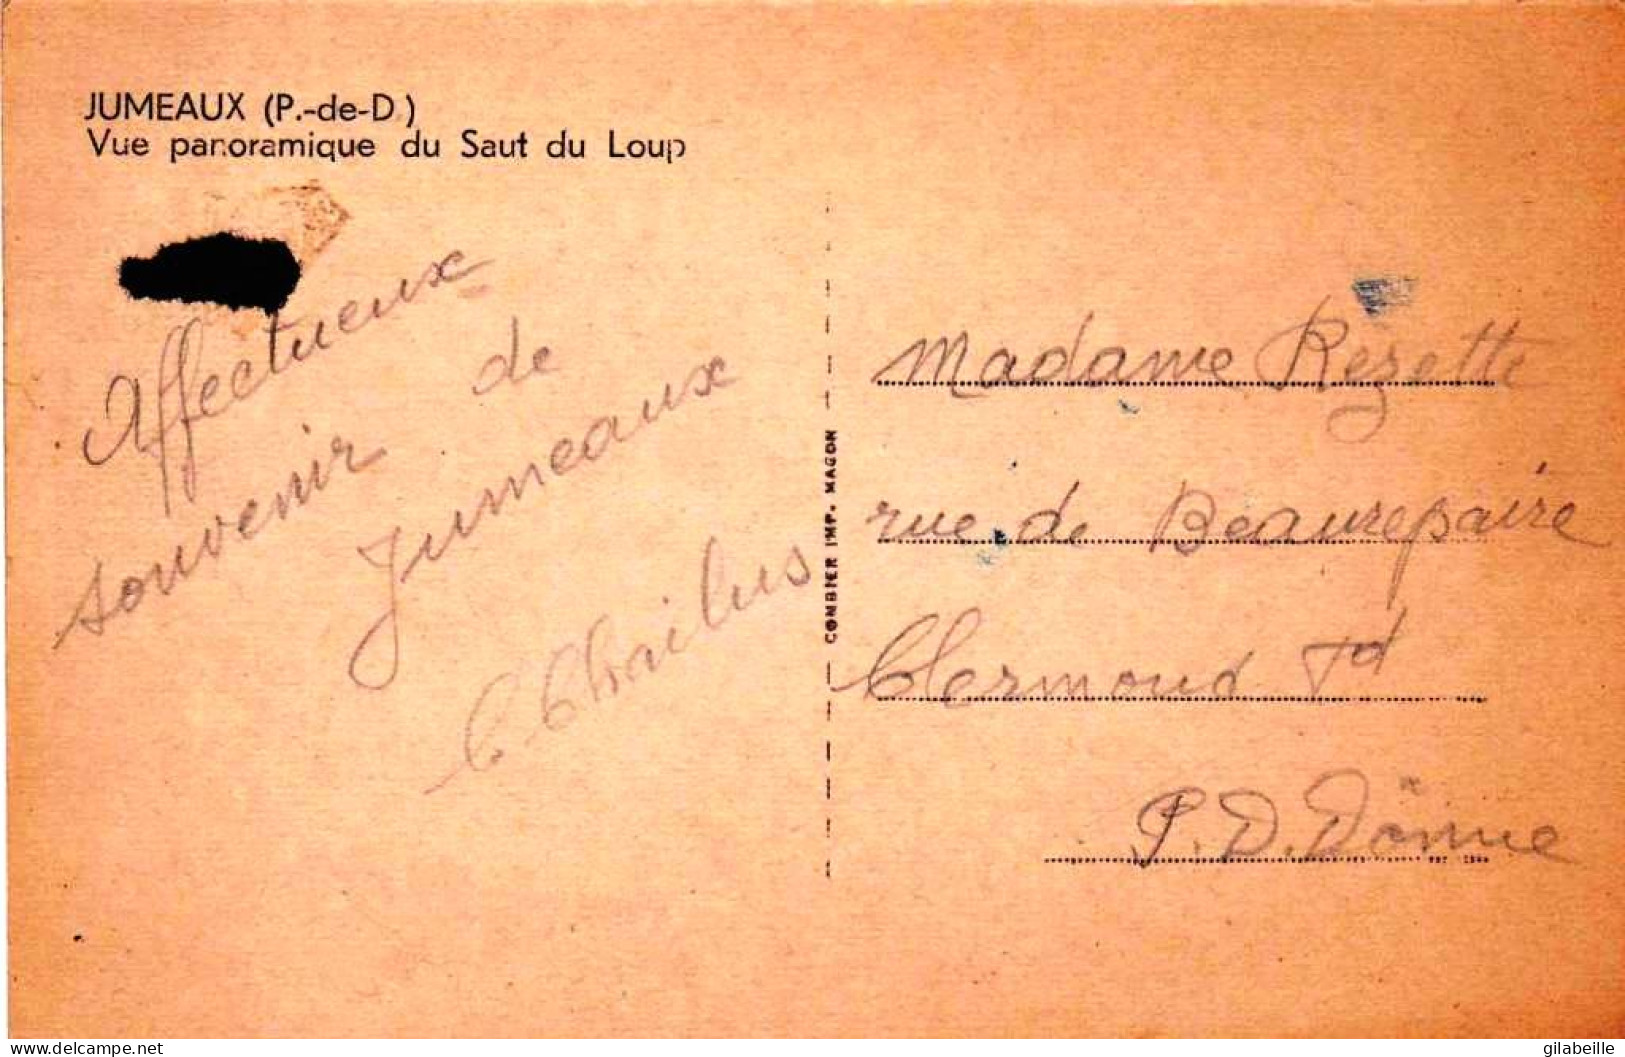 JUMEAUX (P.-de-D.)
Vue panoramique du Saut du Loup
Affectueux
souvenir de
Jumeaux
C. Chailus
COMBIER IMP. MACON
Madame Rezette
rue de Beaurepaire
Clermond Fd
P. D. Dôme
www.delcampe.net
gilabeille